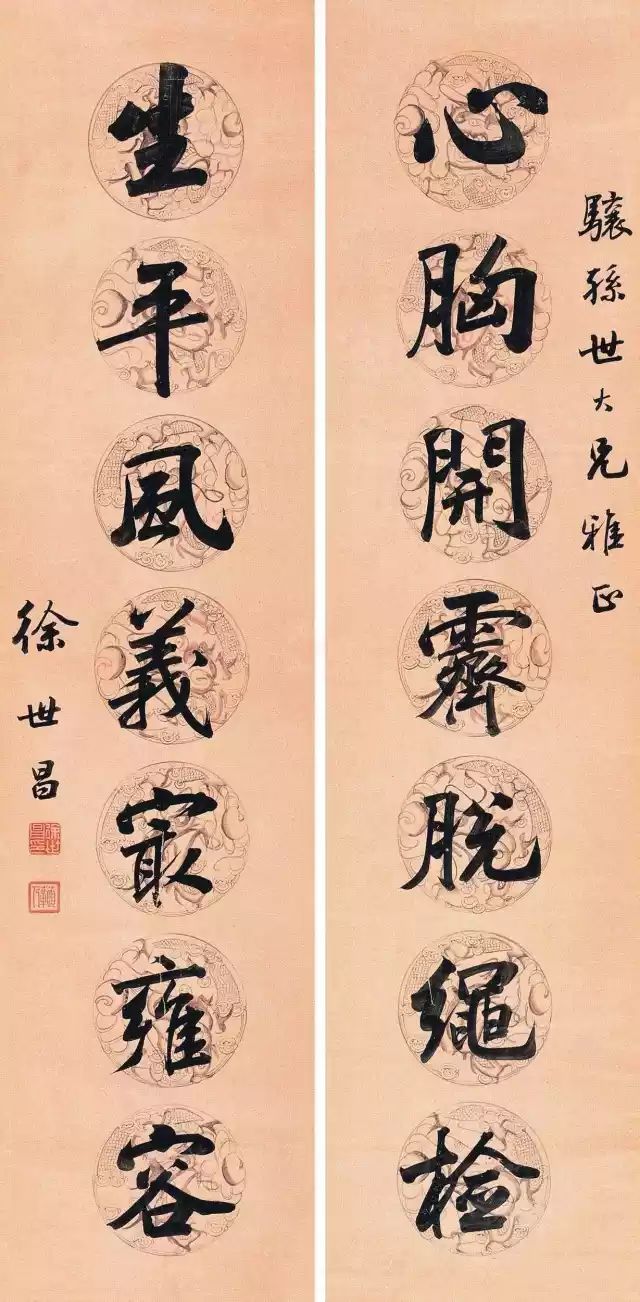 驤孫世大兄雅正
心胸開霽脫繩檢
生平風義最雍容
徐世昌